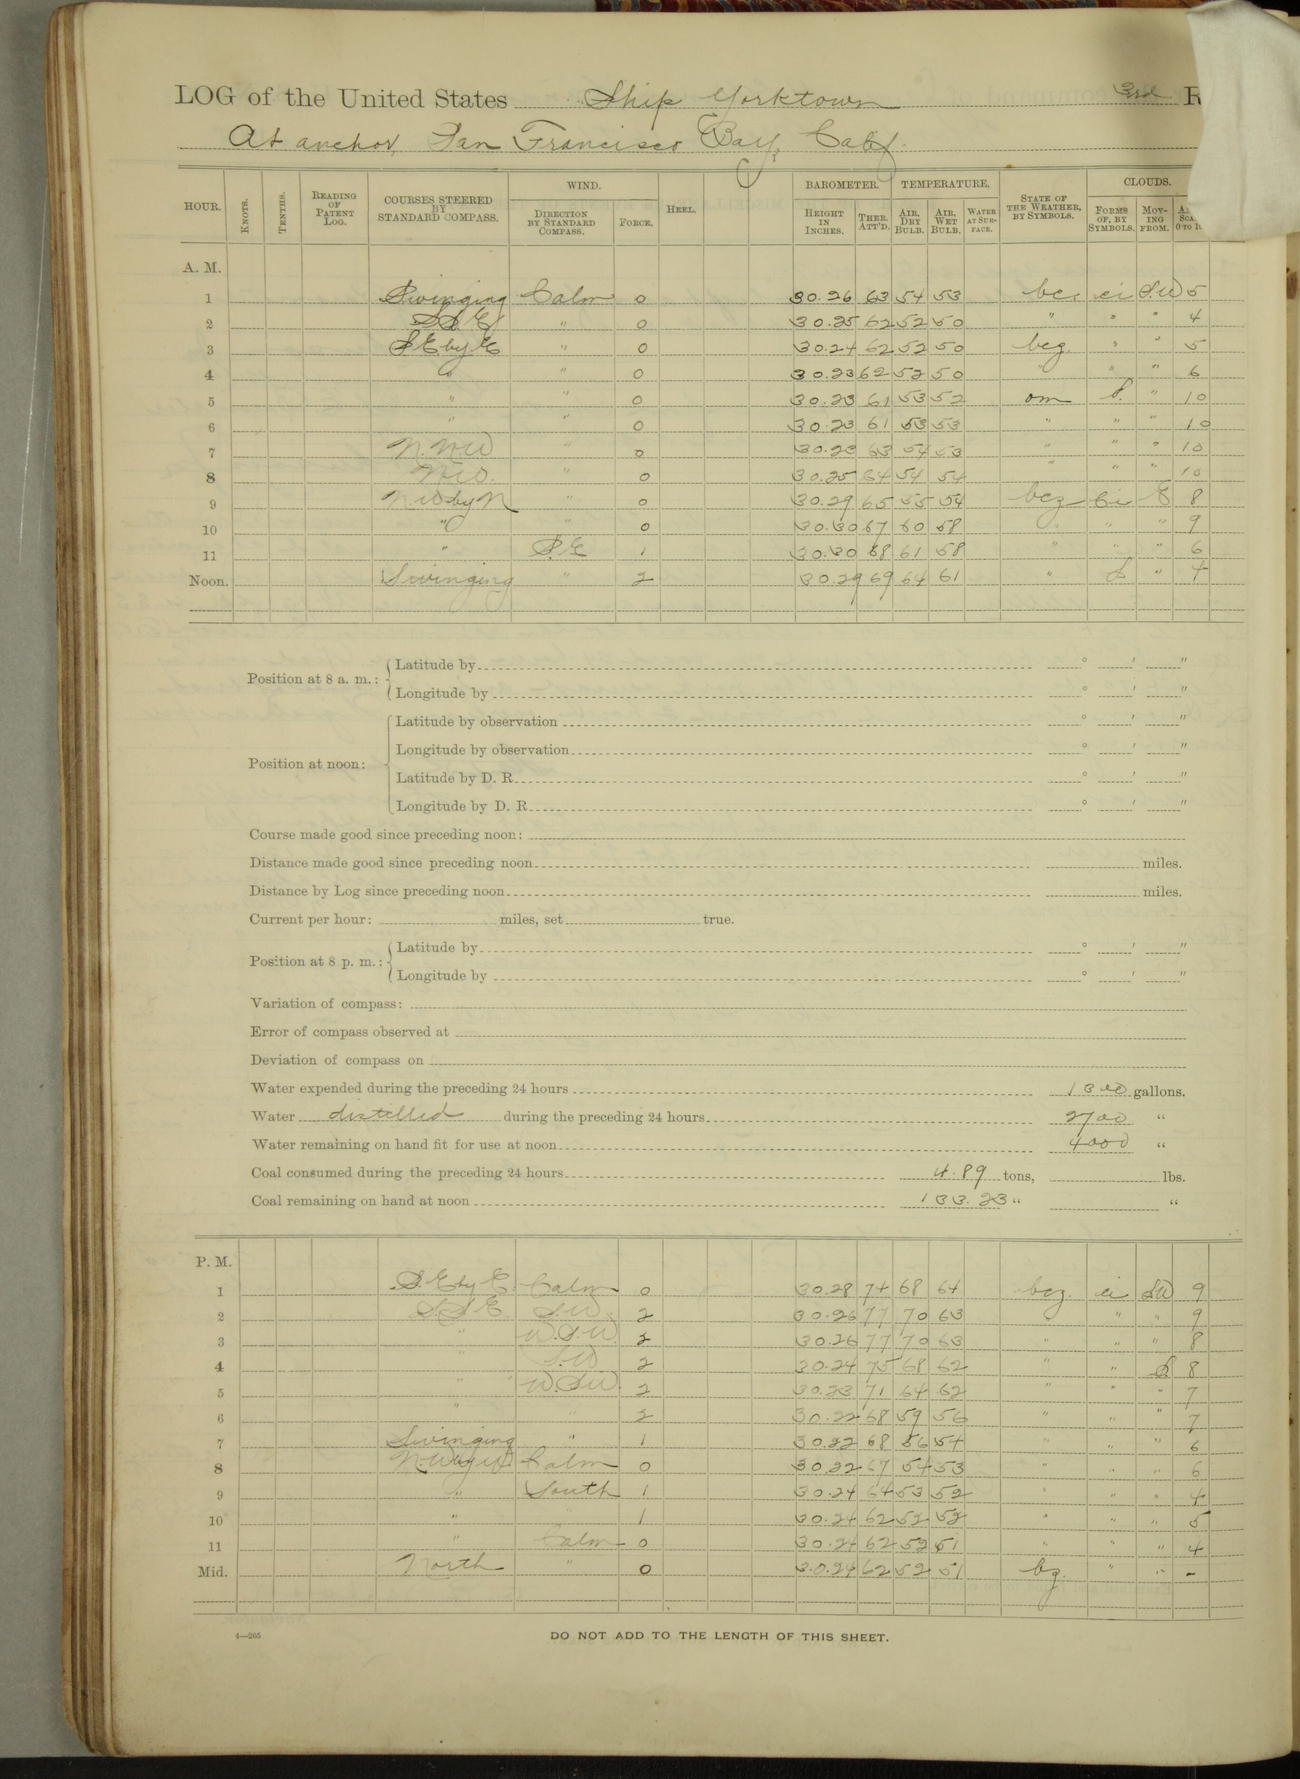 LOG of the United States Ship Yorktown 3rd R
At anchor, San Francisco Bay, Calif.
HOUR. KNOTS. TENTHS. READING OF PATENT LOG. COURSES STEERED BY STANDARD COMPASS. WIND. DIRECTION BY STANDARD COMPASS. FORCE. HEEL. BAROMETER. HEIGHT IN INCHES. THER. ATT'D. TEMPERATURE. AIR, DRY BULB. AIR, WET BULB. WATER AT SURFACE. STATE OF THE WEATHER, BY SYMBOLS. CLOUDS. FORMS OF, BY SYMBOLS. MOVING FROM.
A. M.
1 Swinging Calm 0 30.26 63 54 53 bcz ci S.W 5
2 S S E " 0 30.25 62 52 50 " " " 4
3 S.E. by E " 0 30.24 62 52 50 bcz. " " 5
4 " " 0 30.23 62 52 50 " " " 6
5 " " 0 30.23 61 53 52 om S. " 10
6 " " 0 30.23 61 53 53 " " " 10
7 N.NW " 0 30.23 63 54 53 " " " 10
8 NW. " 0 30.25 64 54 54 " " " 10
9 N.W by N " 0 30.29 65 55 54 bcz Ci E 8
10 " " 0 30.30 67 60 58 " " " 9
11 " S.E 1 30.30 68 61 58 " " " 6
Noon. Swinging " 2 30.29 69 64 61 " S " 4
Position at 8 a. m.: Latitude by ° ' "
Longitude by ° ' "
Position at noon: Latitude by observation ° ' "
Longitude by observation ° ' "
Latitude by D. R. ° ' "
Longitude by D. R. ° ' "
Course made good since preceding noon:
Distance made good since preceding noon miles.
Distance by Log since preceding noon miles.
Current per hour: miles, set true.
Position at 8 p. m.: Latitude by ° ' "
Longitude by ° ' "
Variation of compass:
Error of compass observed at
Deviation of compass on
Water expended during the preceding 24 hours 1300 gallons.
Water distilled during the preceding 24 hours 2700 "
Water remaining on hand fit for use at noon 4000 "
Coal consumed during the preceding 24 hours 4.89 tons, lbs.
Coal remaining on hand at noon 133.23 " "
P. M.
1 S.E by E. Calm 0 30.28 74 68 64 bcz. ci SW 9
2 S S E. S.W. 2 30.26 77 70 63 " " " 9
3 " W.S.W 2 30.26 77 70 63 " " " 8
4 " S.W 2 30.24 75 68 62 " " S 8
5 " W.S.W. 2 30.23 71 64 62 " " " 7
6 " " 2 30.22 68 59 56 " " " 7
7 Swinging " 1 30.22 68 56 54 " " " 6
8 N.W by W. Calm 0 30.22 67 54 53 " " " 6
9 " South 1 30.24 64 53 52 " " " 4
10 " " 1 30.24 62 52 52 " " " 5
11 " Calm 0 30.24 62 52 51 " " " 4
Mid. North " 0 30.24 62 52 51 bz. " " -
4—265
DO NOT ADD TO THE LENGTH OF THIS SHEET.